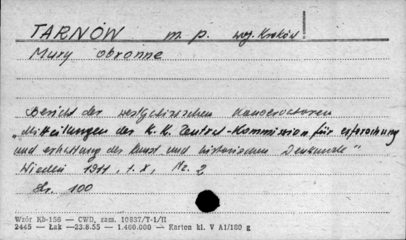 TARNÓW m. p. woj. Kraków
Mury obronne
Bericht der westgalizischen Konservatoren
"Mitteilungen der K. K. Zentral-Kommission für Erforschung
und erhaltung der Kunst und historischen Denkmale"
Wiedeń 1911, t. X, Nr. 2
str. 100
Wzór Kb-156 — CWD, zam. 10837/T-1/II
2445 — Łak — 23.8.55 — 1.460.000 — Karton kl. V A1/180 g